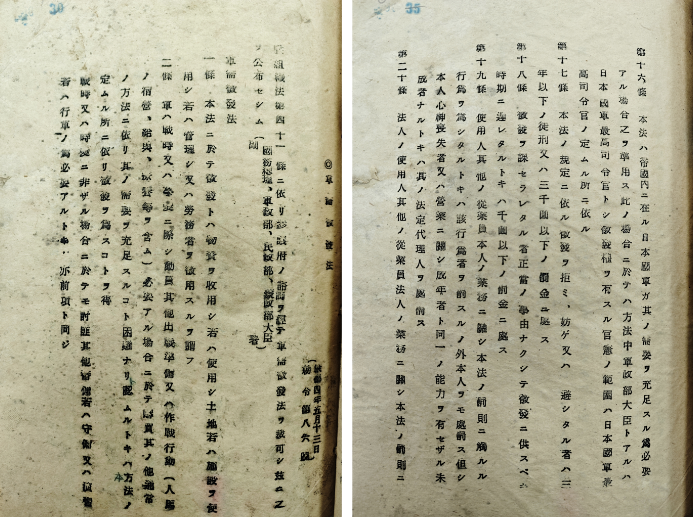 30
◎軍需徵發法
康德四年五月十三日
勅令第八六號
組織法第四十一條ニ依リ參議府ノ諮詢ヲ經テ軍需徵發法ヲ裁可シ茲ニ之
ヲ公布セシム
國務總理、軍政部、民政部、蒙政部大臣
軍需徵發法
一條 本法ニ於テ徵發トハ物資ヲ收用シ若ハ使用シ土地若ハ施設ヲ使
用シ若ハ管理シ又ハ勞務者ヲ徵用スルヲ謂フ
二條 軍ハ戰時又ハ事變ニ際シ動員其他出戰準備又ハ作戰行動(人馬
ノ宿營、給與、等ヲ含ム)必要アル場合ニ於テ賣買其ノ他通常
ノ方法ニ依リ其ノ需要ヲ充足スルコト困難ナリ認ムルトキハ
定ムル所ニ依リ徵發ヲ爲スコトヲ得
戰時又ハ時變ニ非ザル場合ニ於テモ討匪其他警備若ハ守備又ハ演習
若ハ行軍ノ爲必要アルトキ亦前項ト同ジ
35
第十六條 本法ハ帝國內ニ在ル日本國軍ガ其ノ需要ヲ充足スル爲必要
アル場合之ヲ準用ス此ノ場合ニ於テハ方法中軍政部大臣トアルハ
日本國軍最高司令官トシ徵發權ヲ有スル官憲ノ範圍ハ日本國軍最
高司令官ノ定ムル所ニ依ル
第十七條 本法ノ規定ニ依ル徵發ヲ拒ミ、妨ゲ又ハ 避シタル者ハ三
年以下ノ徒刑又ハ三千圓以下ノ罰金ニ處ス
第十八條 徵發ヲ課セラレタル者正當ノ事由ナクシテ徵發ニ供スベキ
時期ニ遲レタルトキハ千圓以下ノ罰金ニ處ス
第十九條 使用人其他ノ從業員本人ノ業務ニ關シ本法ノ罰則ニ觸ルル
行爲ヲ爲シタルトキハ該行爲者ヲ罰スルノ外本人ヲモ處罰ス但シ
本人心神喪失者又ハ營業ニ關シ成年者ト同一ノ能力ヲ有セザル未
成者ナルトキハ其ノ法定代理人ヲ處罰ス
第二十條 法人ノ使用人其他ノ從業員法人ノ業務ニ關シ本法ノ罰則ニ